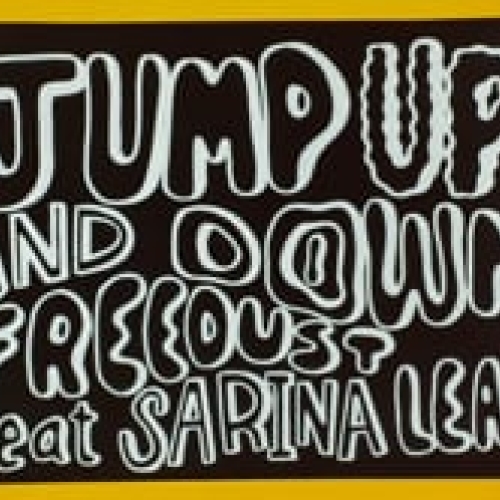 JUMP UP
AND DOWN
FREEDUST
feat SARINA LEA